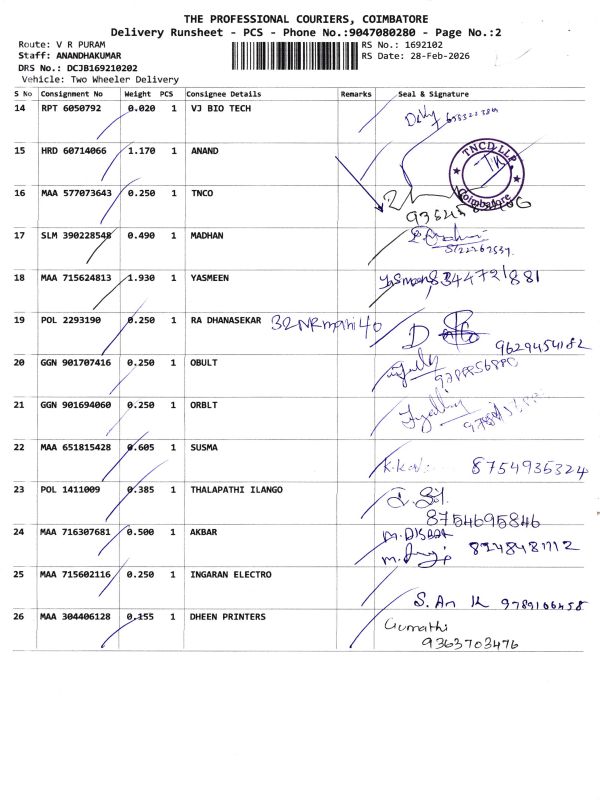 THE PROFESSIONAL COURIERS, COIMBATORE
Delivery Runsheet - PCS - Phone No.:9047080280 - Page No.:2
Route: V R PURAM
RS No.: 1692102
Staff: ANANDHAKUMAR
RS Date: 28-Feb-2026
DRS No.: DCJB169210202
Vehicle: Two Wheeler Delivery
S No Consignment No Weight PCS Consignee Details Remarks Seal & Signature
14 RPT 6050792 0.020 1 VJ BIO TECH
15 HRD 60714066 1.170 1 ANAND
TNCD LLP. Coimbatore
16 MAA 577073643 0.250 1 TNCO
17 SLM 390228548 0.490 1 MADHAN
18 MAA 715624813 1.930 1 YASMEEN Yasmeen 8344721881
19 POL 2293190 0.250 1 RA DHANASEKAR
9629454182
20 GGN 901707416 0.250 1 OBULT
21 GGN 901694060 0.250 1 ORBLT
22 MAA 651815428 0.605 1 SUSMA 8754935324
23 POL 1411009 0.385 1 THALAPATHI ILANGO
8754695846
24 MAA 716307681 0.500 1 AKBAR
25 MAA 715602116 0.250 1 INGARAN ELECTRO
9789106458
26 MAA 304406128 0.155 1 DHEEN PRINTERS Gumathi
9363703476